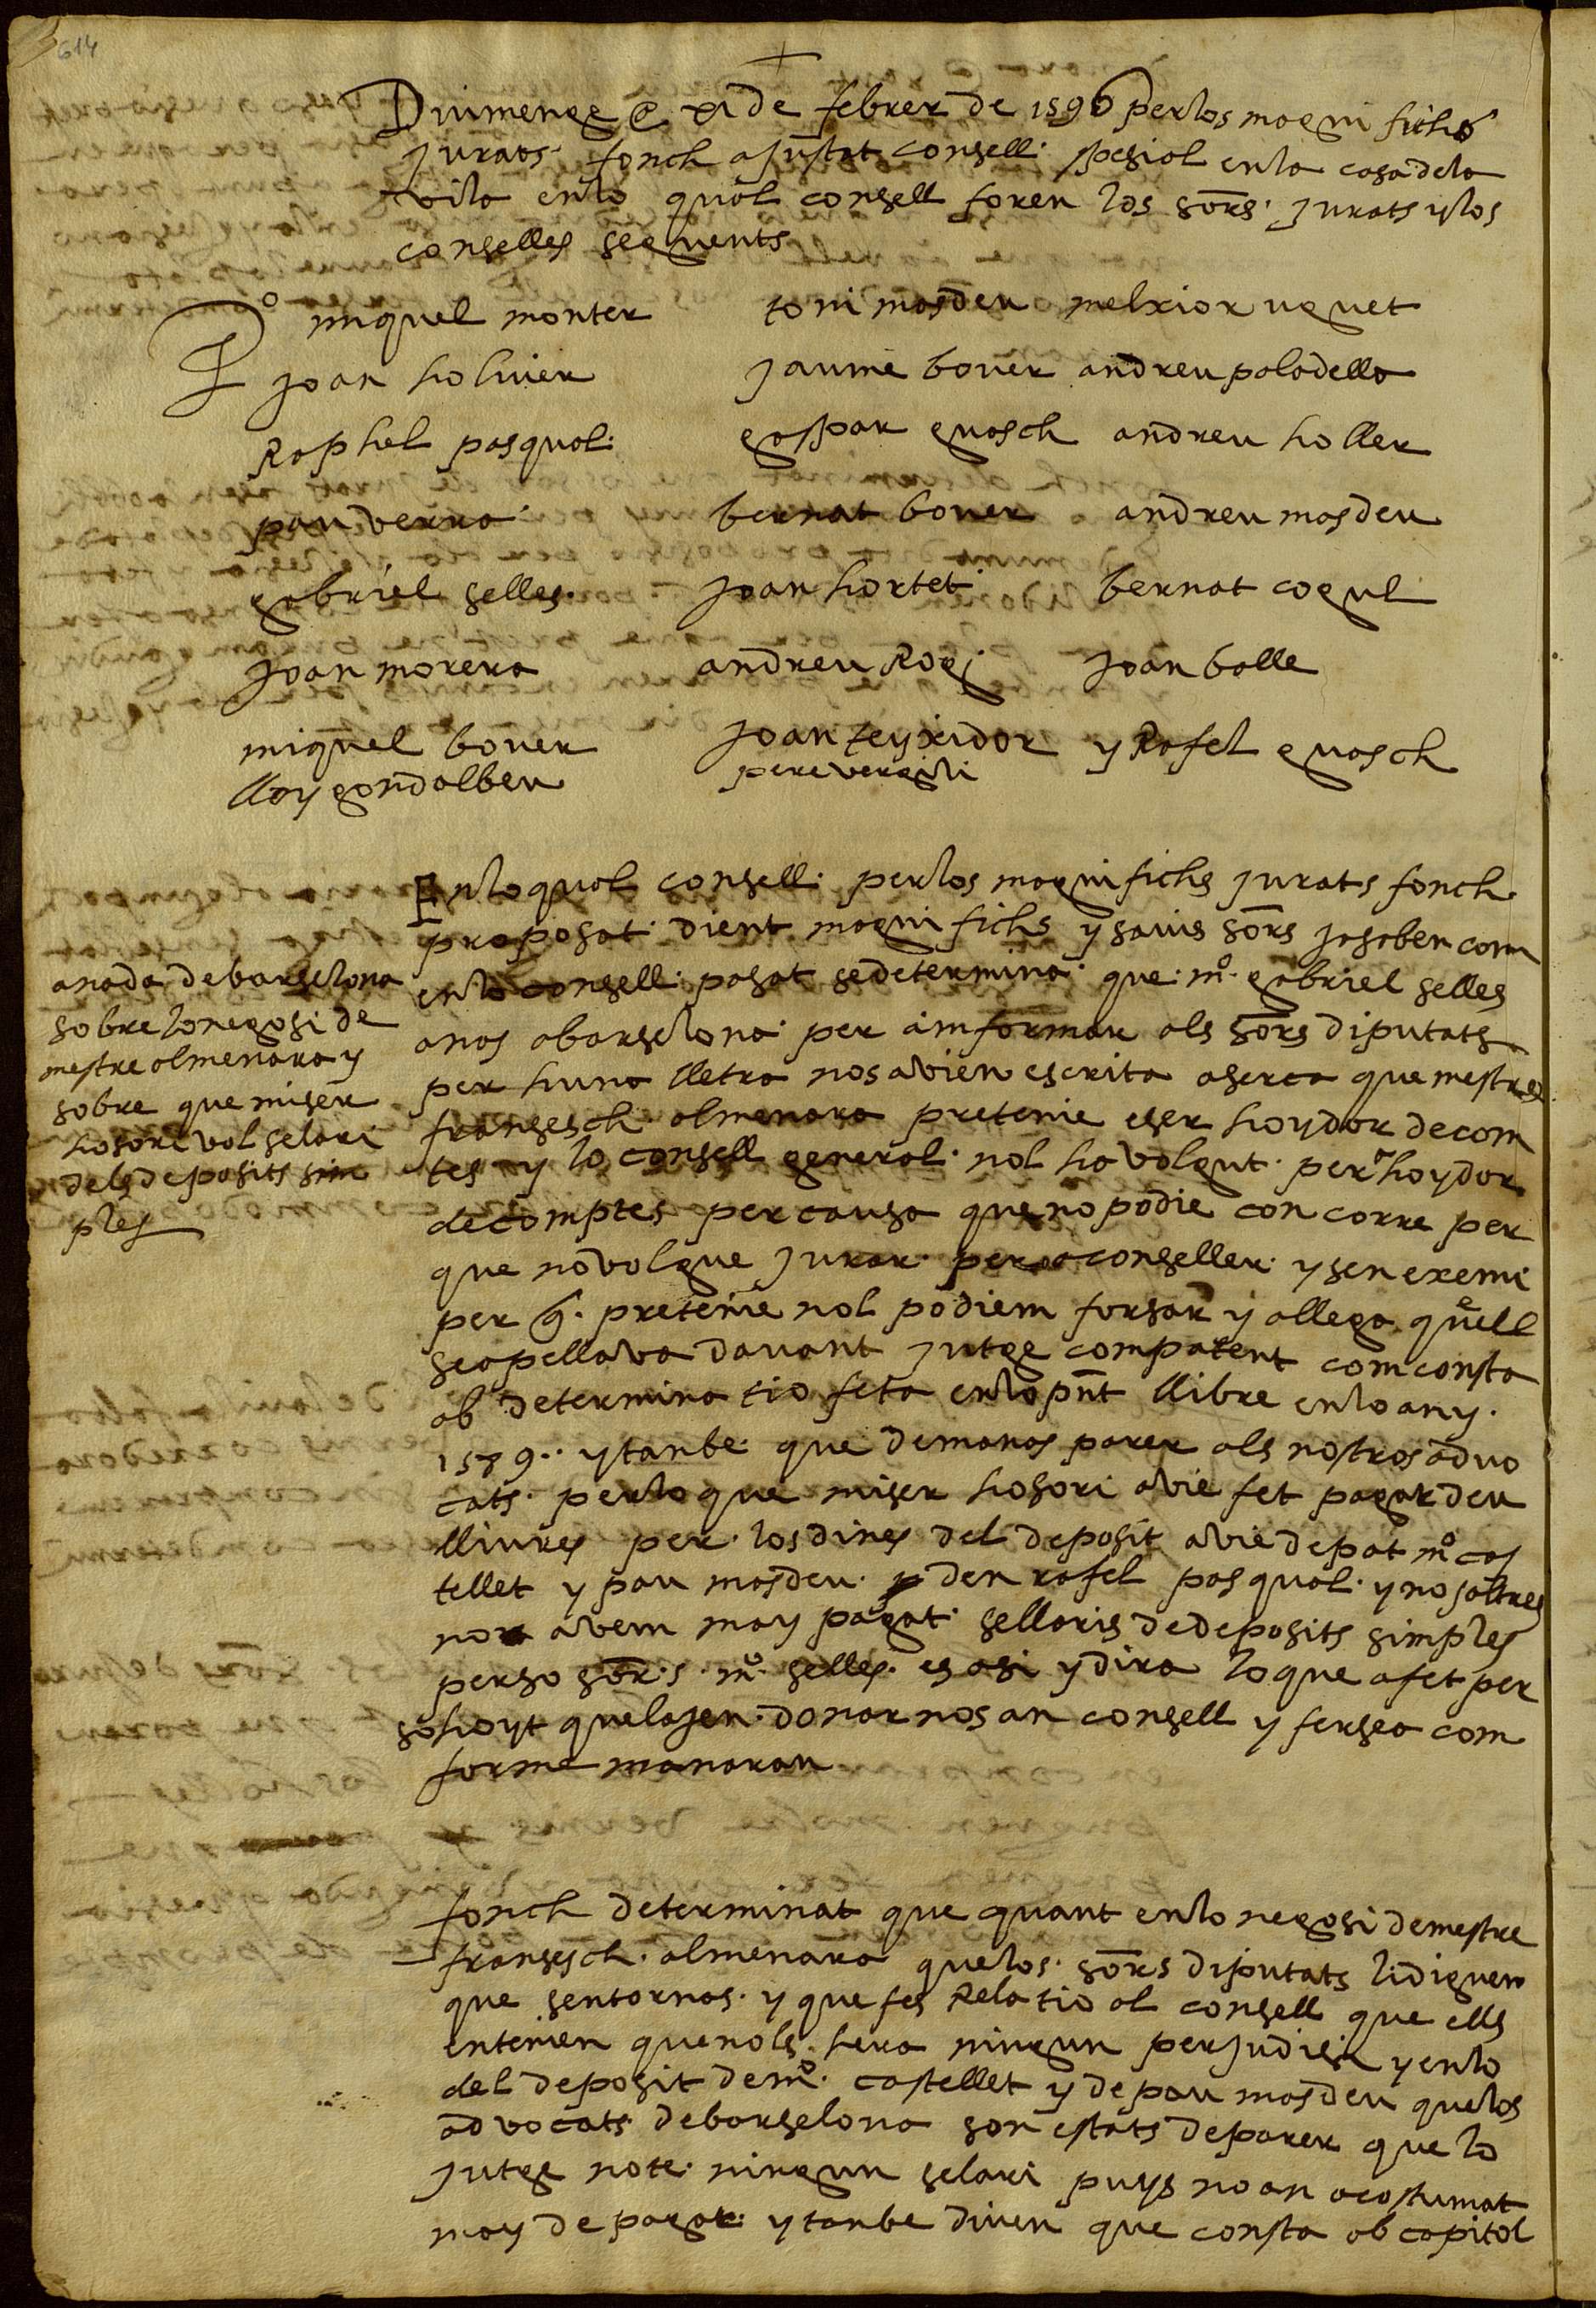 614
+
Diumenge a xi de febrer de 1596 per los magnifichs
jurats fonch ajustat consell spesial en la casa de la
vila en lo qual consell foren los sors. jurats y los
conselles seguents
miquel monter toni masdeu melxior uguet
joan holivier jaume bover andreu paladella
Raphel pasqual gaspar guasch andreu holler
pau verra bernat bover andreu masdeu
gabriel selles joan hortet bernat cogul
joan morera andreu Rog joan balle
miquel bover joan teyxidor y Rafel guasch
lloy gondalbeu pere vergili
En lo qual consell per los magnifichs jurats fonch
proposat dient magnifichs y savis sors ja saben com
en lo consell pasat se determina que mº gabriel selles
anas a barselona per aimformar als sors diputats
per huna lletra nos avien escrita aserca que mestre
fransesch almenara pretenie eser hoydor de com
tes y lo consell general nol ha volgut per hoydor
de comptes per causa que no podie concorre per
que no volgue jurar per a conseller y sen exemi
per q. pretenie nol podiem forsar y allega quell
se apellava davant jutge compatent com consta
ab determinatio feta en lo pnt llibre en lo any
1589 .. y tanbe que demanas parer als nostros advo
cats per lo que miser hosori avie fet pagar deu
lliures per los dines del deposit avie depat mº cas
tellet y pau masdeu y den rafel pasqual y nosaltres
no avem may pagat sellaris de deposits simples
perso sor.s mº selles es asi y dira lo que a fet per
so hoyt quelajen donar nos an consell y fersea com
forme manaran
anada de barselona
sobre lo negosi de
mestre almenara y
sobre que miser
hosori vol selari
dels deposits sim
ples
fonch determinat que quant en lo negosi de mestre
fransesch almenara que los sors diputats li digueren
que sentornas y que fes Relatio al consell que ells
entenien que nols hera ningun perjudisi y en lo
del deposit de mº castellet y de pau masdeu que los
advocats de barselona son estats de parer que lo
jutge no te ningun selari puys no an acostumat
may de pagar y tanbe diuen que consta ab capitol